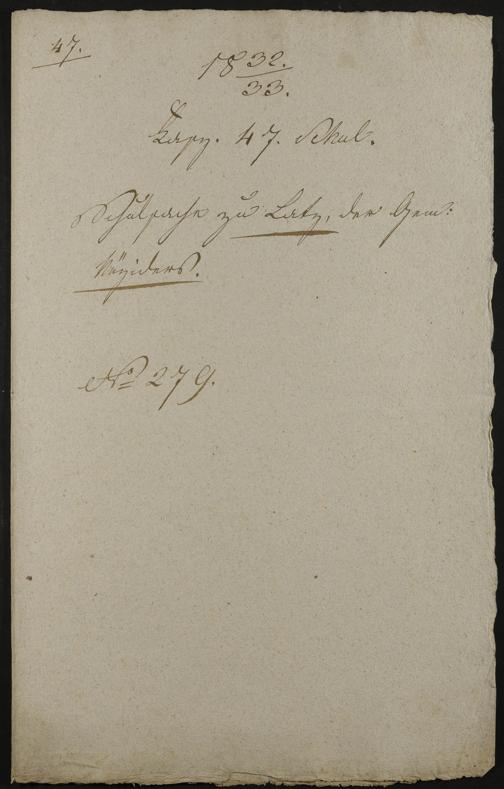 47.
18 32.
33.
Fasz. 47. Schul.
Schulsache zu Latz, der Gem:
Nüziders.
No 279.